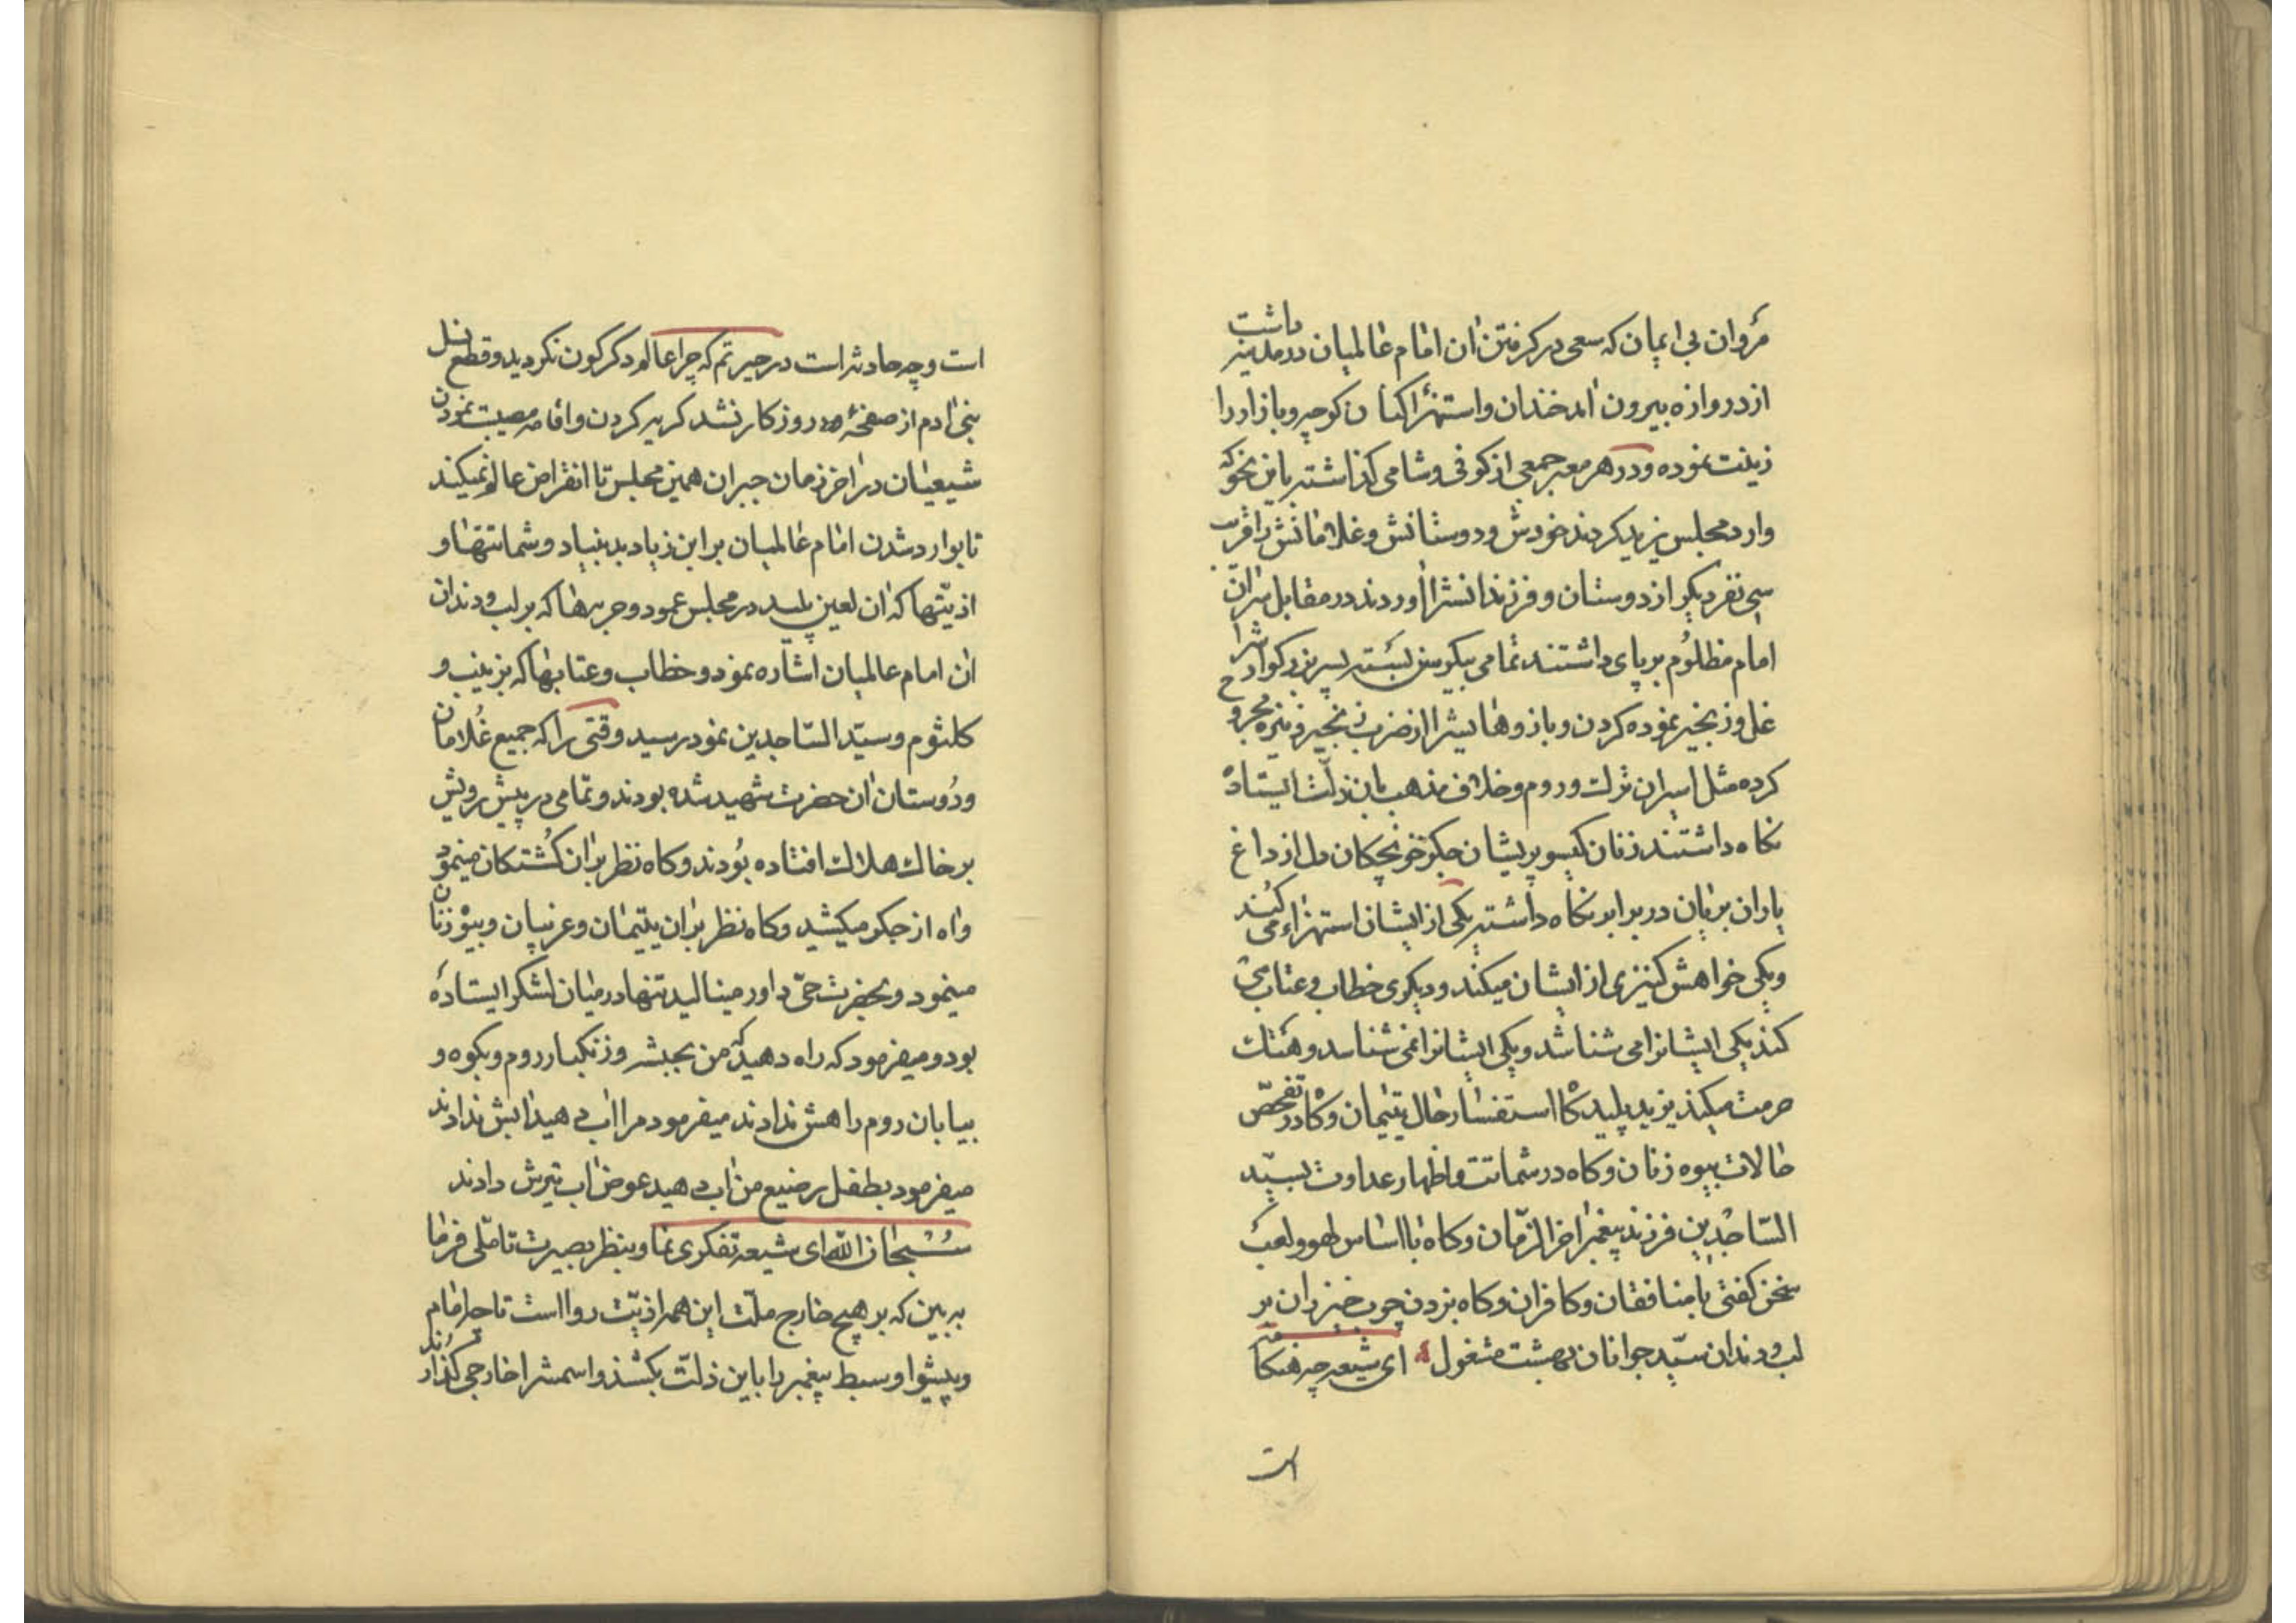 مروان بی ایمان که سعی در کرفتن ان امام عالمیان در مدینه داشت
از دروازه بیرون امد خندان و استهزا کنان کوچه و بازار را
زینت نموده و در هر معبر جمعی از کوفی و شامی کذاشته باین نحو که
وارد مجلس یزید کردند خودش و دوستانش و غلامانش را قریب
سی نفر دیکر از دوستان و فرزندانشرا اوردند در مقابل سران
امام مظلوم بر پای داشتند تمامی بیکرسن بسته پسر بزرکوارشرا
غل و زنجیر نموده کردن و بازوهایشرا از ضرب زنجیر و نیزه مجروح
کرده مثل اسیران ترک و روم و خلاف مذهب بان ذلت ایستاده
نکاه داشتند زنان کیسو پریشان جکر خونچکان دل از داغ
یاران بریان در برابر نکاه داشته یکی از ایشان استهزاء می کند
و یکی خواهش کنیزی از ایشان میکند و دیکری خطاب و عتاب می
کند یکی ایشانرا می شناشد و یکی ایشانرا نمی شناسد و هتک
حرمت میکند یزید پلید کاه استفسار حال یتیمان و کاه در تفحص
حالات بیوه زنان و کاه در شماتت و اظهار عداوت بسید
الساجدین فرزند پیغمبر اخر الزمان و کاه با اساس لهو و لعب
سخن کفتن با منافقان و کافران و کاه بزدن چوب خیزران بر
لب و دندان سید جوانان بهشت مشغول ای شیعه چه هنکامه
است
است و چه حادثه است در حیرتم که چرا عالم دکرکون نکردید و قطع نسل
بنی ادم از صفحه روزکار نشد کریه کردن و اقامه مصیبت نمودن
شیعیان در اخر زمان جبران همین مجلس تا انقراض عالم نمیکند
تا بوارد شدن امام عالمیان بر ابن زیاد بد بنیاد و شماتتها و
اذیتها که ان لعین پلید در مجلس نمود و جربرها که بر لب و دندان
ان امام عالمیان اشاره نمود و خطاب و عتابها که بزینب و
کلثوم و سید الساجدین نمود رسید وقتی را که جمیع غلامان
و دوستان ان حضرت شهید شده بودند و تمامی در پیش رویش
بر خاک هلاک افتاده بودند و کاه نظر بران کشتکان مینمود
و اه از جکر میکشید و کاه نظر بران یتیمان و غریبان و بیوه زنان
مینمود و بحضرت حی داور مینالید تنها در میان لشکر ایستاده
بود و میفرمود که راه دهید که من بحبشه و زنکبار روم و بکوه و
بیابان روم راهش ندادند میفرمود مرا اب دهید ابش ندادند
میفرمود بطفل رضیع من اب دهید عوض اب تیرش دادند
سبحان الله ای شیعه تفکری نما و بنظر بصیرت تاملی فرما
به بین که بر هیچ خارج ملت این همه اذیت روا است تا چه امام
و پیشوا و سبط پیغمبر را باین ذلت بکشند و اسمشرا خارجی کذارند